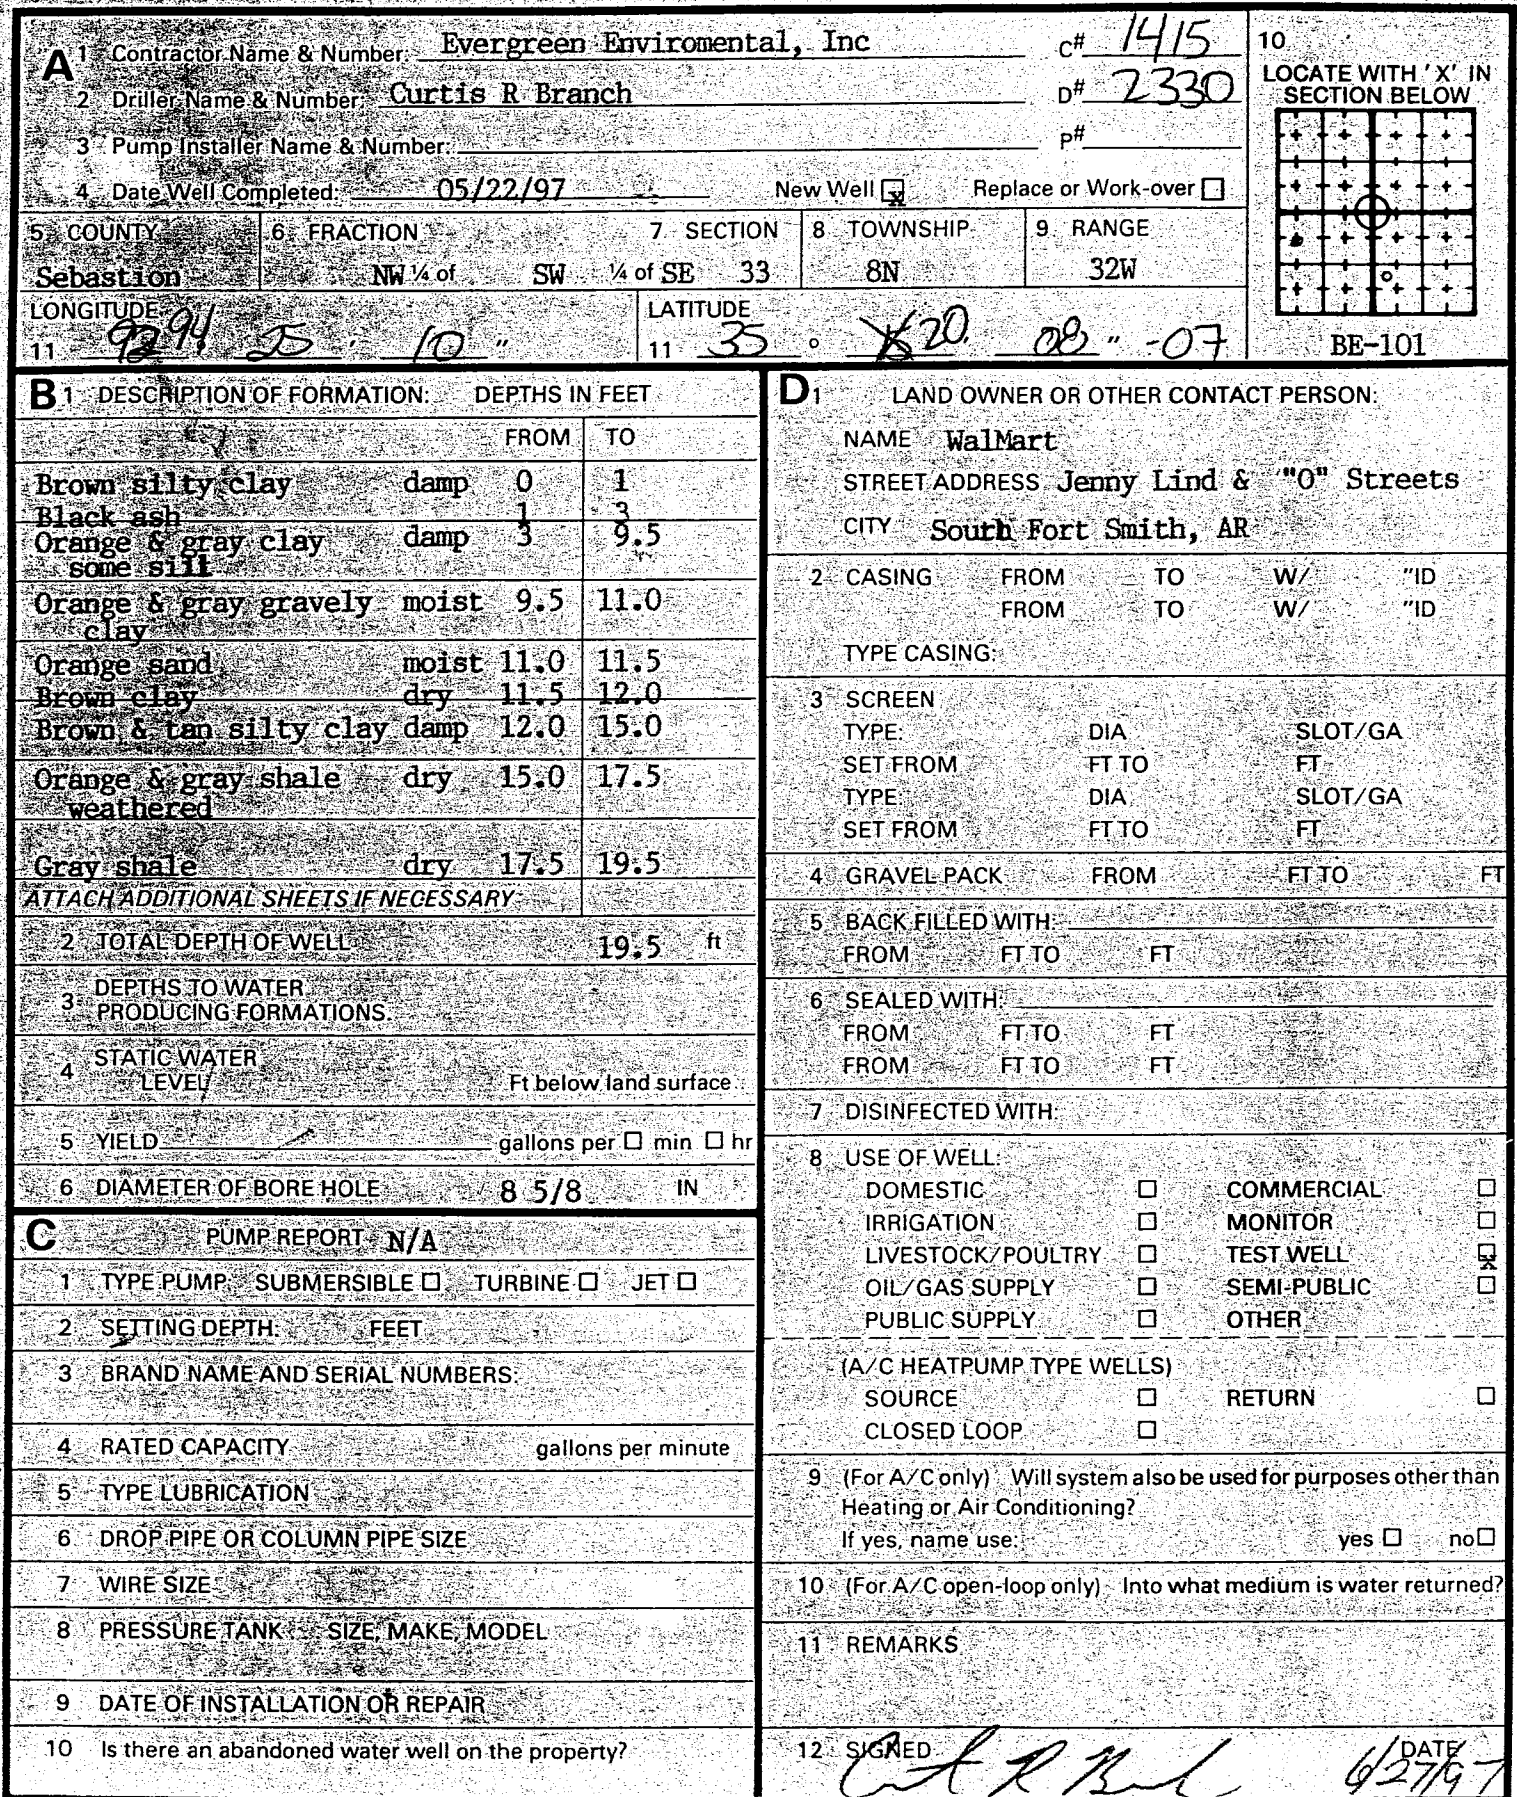 A 1 Contractor Name & Number: Evergreen Enviromental, Inc C# 1415
2 Driller Name & Number: Curtis R Branch D# 2330
3 Pump Installer Name & Number: P#
4 Date Well Completed: 05/22/97 New Well ☒ Replace or Work-over ☐
10
LOCATE WITH 'X' IN
SECTION BELOW
BE-101
5 COUNTY 6 FRACTION 7 SECTION 8 TOWNSHIP 9 RANGE
Sebastion NW ¼ of SW ¼ of SE 33 8N 32W
LONGITUDE LATITUDE
11 92 94 ° 25 ' 10 " 11 35 ° 20 08 " -07
B 1 DESCRIPTION OF FORMATION: DEPTHS IN FEET
FROM TO
Brown silty clay damp 0 1
Black ash 1 3
Orange & gray clay damp 3 9.5
some sill
Orange & gray gravely moist 9.5 11.0
clay
Orange sand moist 11.0 11.5
Brown clay dry 11.5 12.0
Brown & tan silty clay damp 12.0 15.0
Orange & gray shale dry 15.0 17.5
weathered
Gray shale dry 17.5 19.5
ATTACH ADDITIONAL SHEETS IF NECESSARY
2 TOTAL DEPTH OF WELL 19.5 ft
3 DEPTHS TO WATER
PRODUCING FORMATIONS.
4 STATIC WATER
LEVEL Ft below land surface
5 YIELD gallons per ☐ min ☐ hr
6 DIAMETER OF BORE HOLE 8 5/8 IN
C PUMP REPORT N/A
1 TYPE PUMP SUBMERSIBLE ☐ TURBINE ☐ JET ☐
2 SETTING DEPTH: FEET
3 BRAND NAME AND SERIAL NUMBERS:
4 RATED CAPACITY gallons per minute
5 TYPE LUBRICATION
6 DROP PIPE OR COLUMN PIPE SIZE
7 WIRE SIZE
8 PRESSURE TANK SIZE, MAKE, MODEL
9 DATE OF INSTALLATION OR REPAIR
10 Is there an abandoned water well on the property?
D 1 LAND OWNER OR OTHER CONTACT PERSON:
NAME WalMart
STREET ADDRESS Jenny Lind & "O" Streets
CITY South Fort Smith, AR
2 CASING FROM TO W/ "ID
FROM TO W/ "ID
TYPE CASING:
3 SCREEN
TYPE: DIA SLOT/GA
SET FROM FT TO FT
TYPE: DIA SLOT/GA
SET FROM FT TO FT
4 GRAVEL PACK FROM FT TO FT
5 BACK FILLED WITH:
FROM FT TO FT
6 SEALED WITH:
FROM FT TO FT
FROM FT TO FT
7 DISINFECTED WITH:
8 USE OF WELL:
DOMESTIC ☐ COMMERCIAL ☐
IRRIGATION ☐ MONITOR ☐
LIVESTOCK/POULTRY ☐ TEST WELL ☒
OIL/GAS SUPPLY ☐ SEMI-PUBLIC ☐
PUBLIC SUPPLY ☐ OTHER
(A/C HEATPUMP TYPE WELLS)
SOURCE ☐ RETURN ☐
CLOSED LOOP ☐
9 (For A/C only) Will system also be used for purposes other than
Heating or Air Conditioning?
If yes, name use: yes ☐ no ☐
10 (For A/C open-loop only) Into what medium is water returned?
11 REMARKS
12 SIGNED Curt R Branch DATE 6/27/97